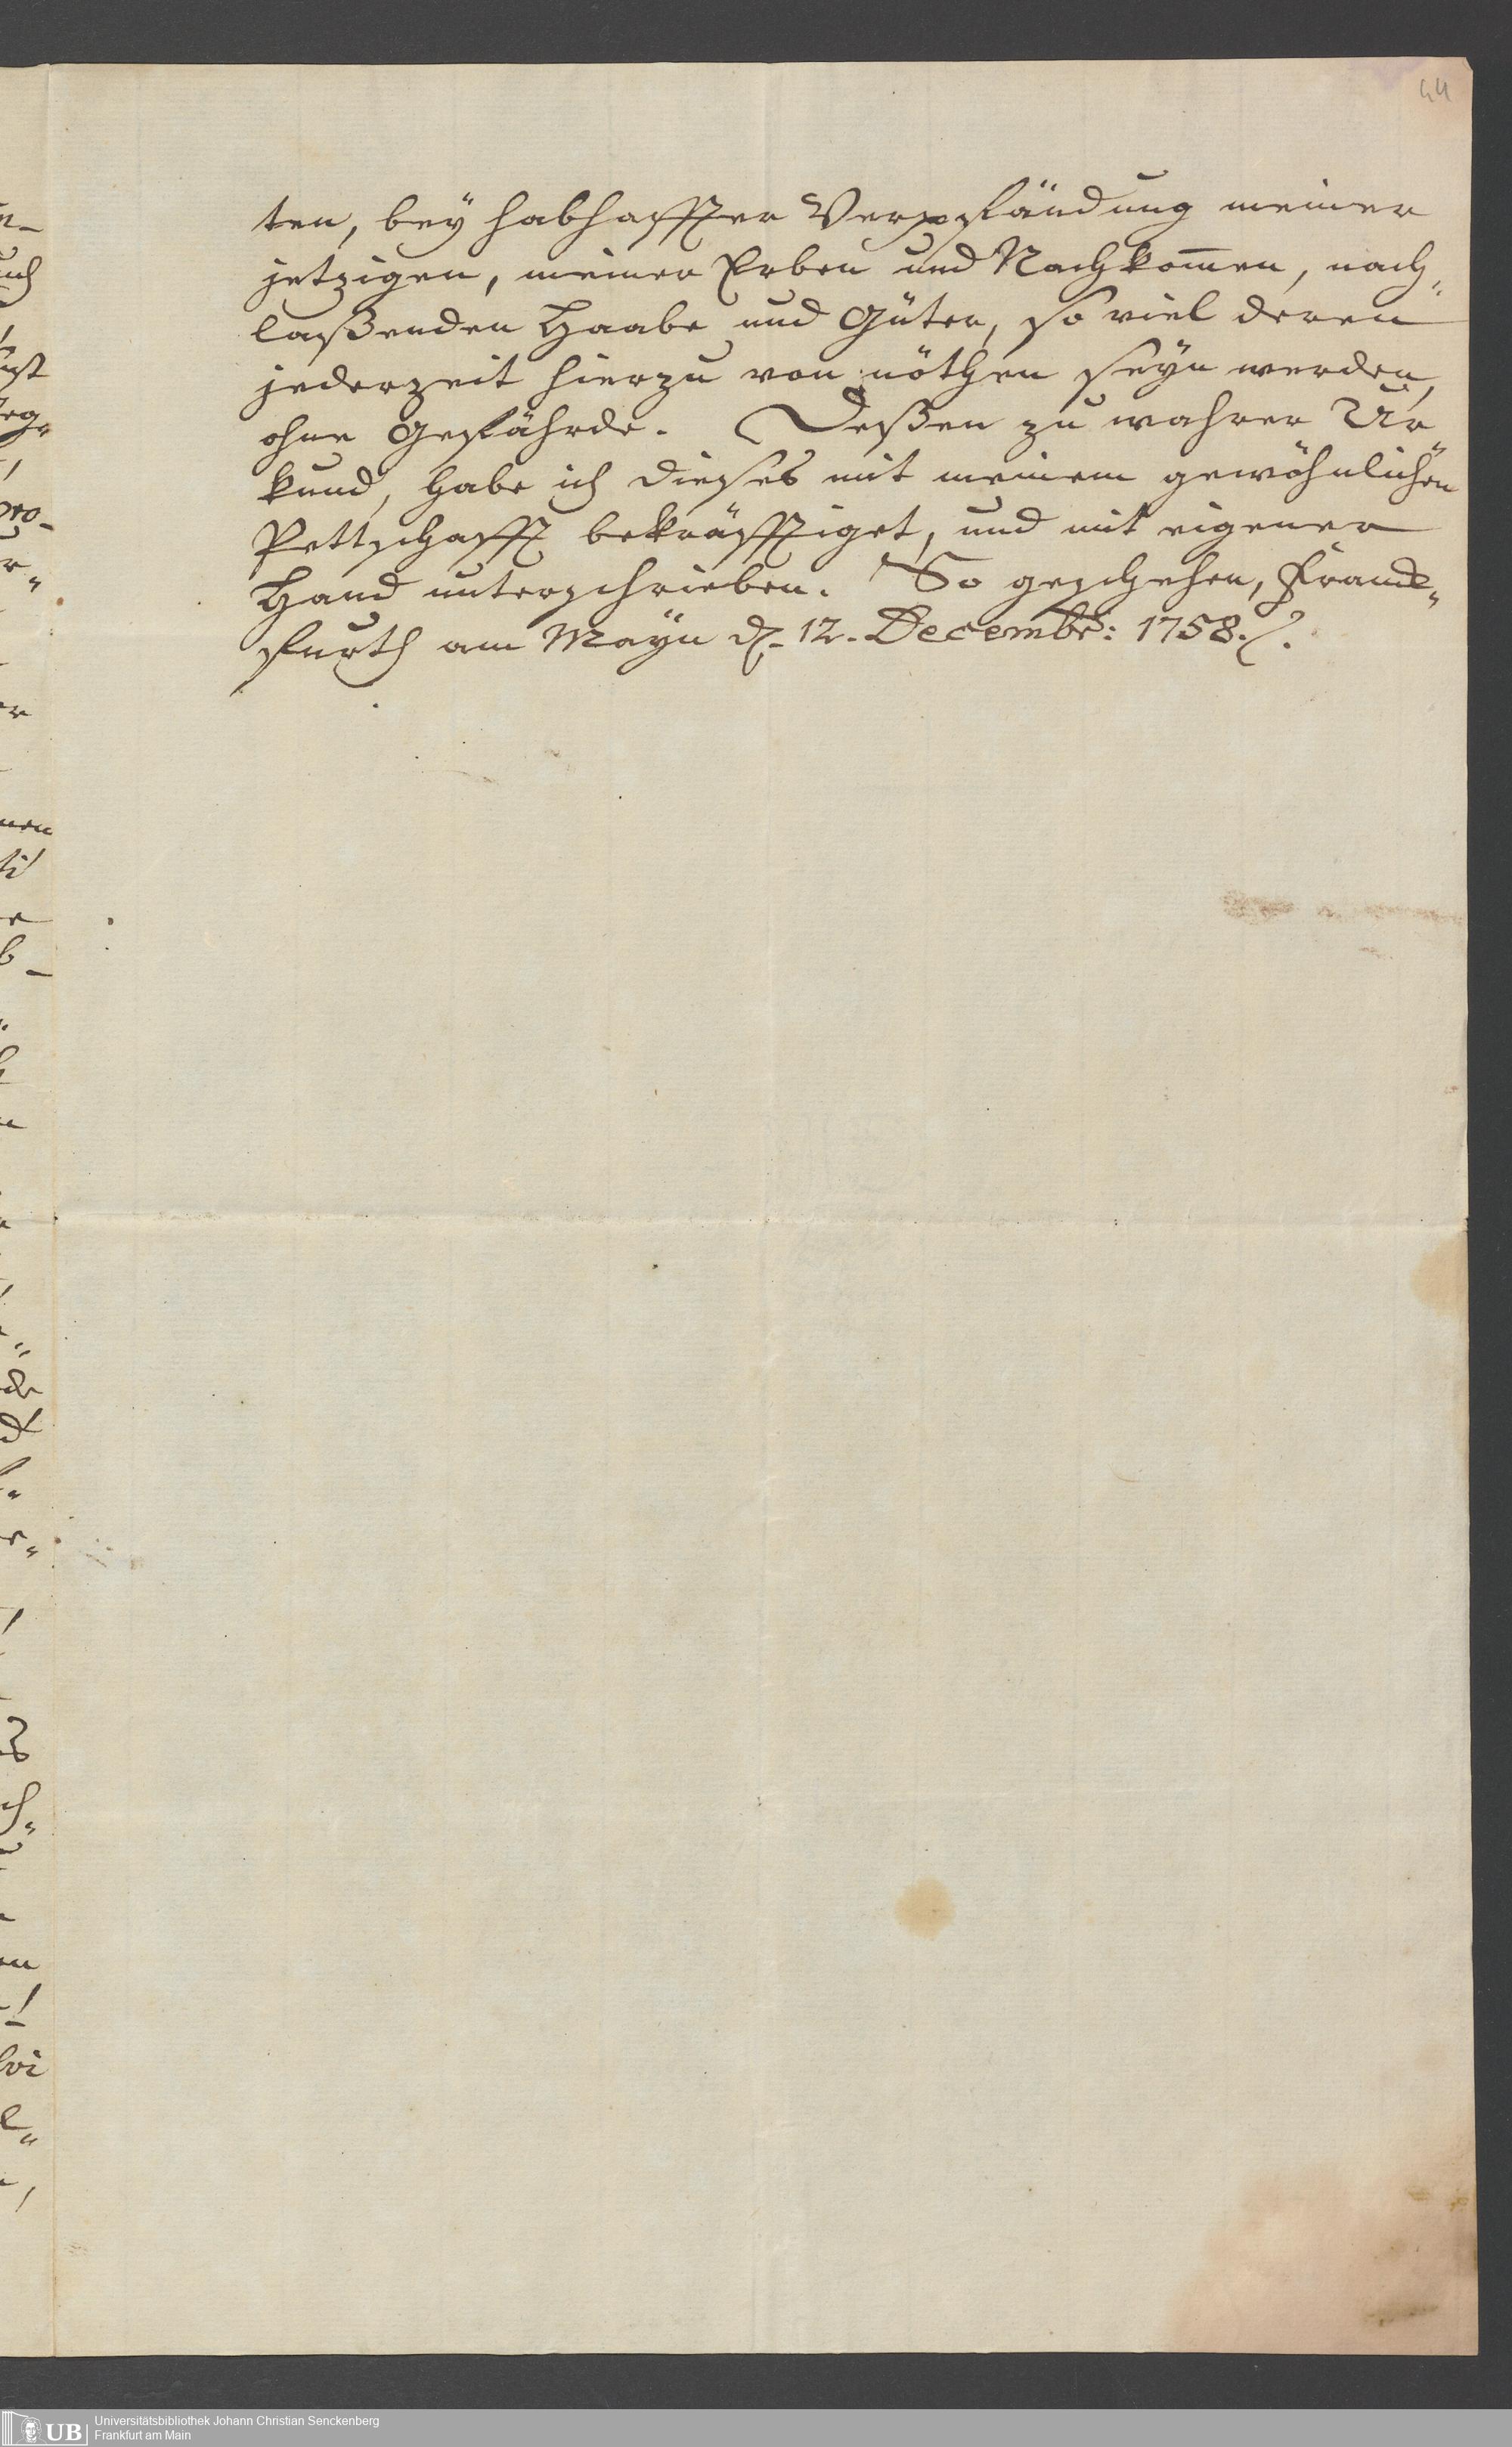 44
ten, bey habhaffter Verpfändung meiner
jetzigen, meiner Erben und Nachkom̅en, nach„
laßenden Haabe und Güter, so viel deren
jederzeit hierzu von nöthen seyn werden,
ohne Gefährde. Deßen zu wahrer Ur„
kund, habe ich dieses mit meinem gewöhnlichen
Pettschafft bekräfftiget, und mit eigener
Hand unterschrieben. So geschehen, Franck„
furth am Mayn d. 12. Decembr: 1758.
UB
Universitätsbibliothek Johann Christian Senckenberg
Frankfurt am Main